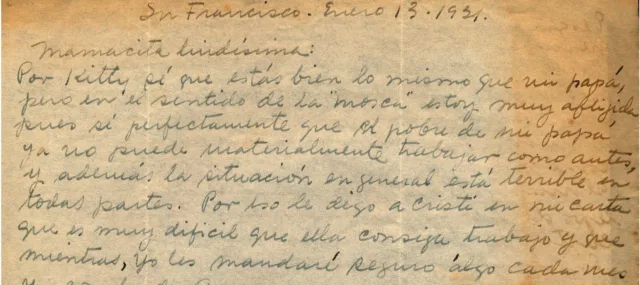 Sn Francisco. Enero 13. 1931.
Mamacita lindísima:
Por Kitty sé que estás bien lo mismo que mi papá,
pero en el sentido de la "mosca" estoy muy afligida
pues sé perfectamente que el pobre de mi papá
ya no puede materialmente trabajar como antes,
y además la situación en general está terrible en
todas partes. Por eso le digo a Cristi en mi carta
que es muy dificil que ella consiga trabajo y que
mientras, yo les mandaré seguro algo cada mes